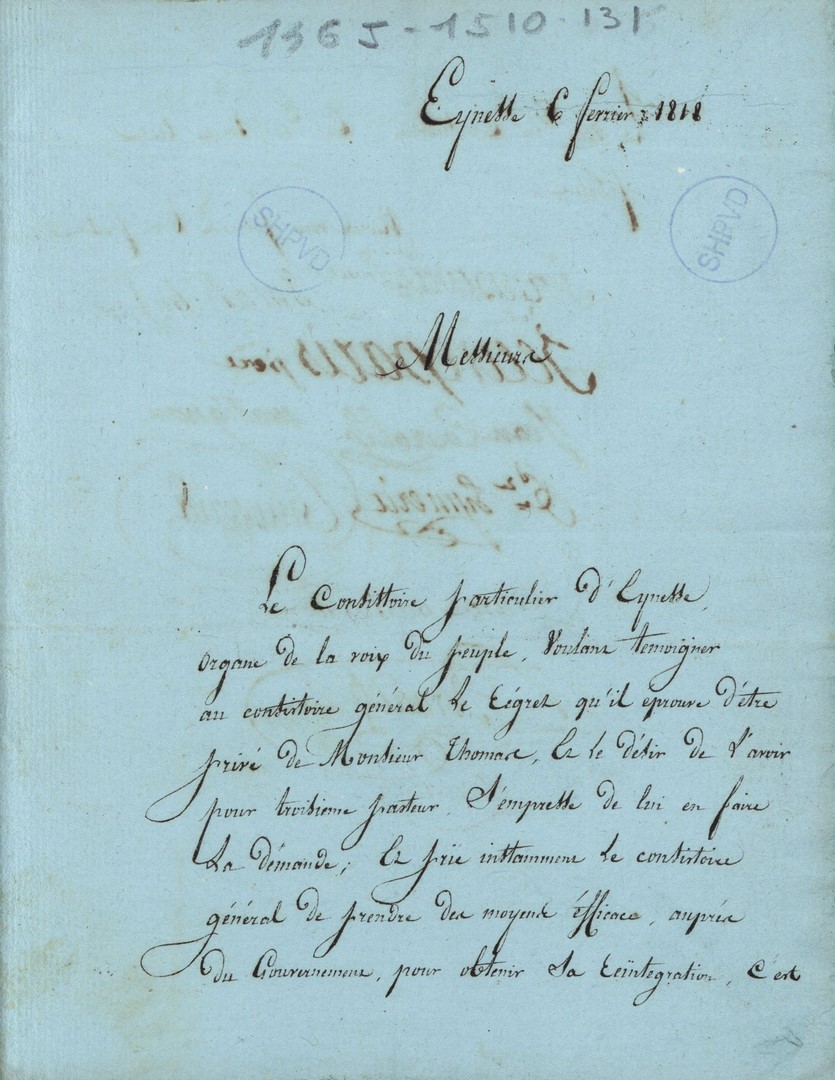 1365-1510-131
Eynesse 6 fevrier 1818
SHPVD
SHPVD
Messieurs
Le Consistoire particulier d'Eynesse,
organe de la voix du peuple, Voulant temoigner
au consistoire général Le Régret qu'il eprouve d'être
privé de Monsieur Thomas, Et le désir de L'avoir
pour troisieme pasteur, S'empresse de lui en faire
La démande; Et prie instamment Le consistoire
général de prendre des moyens éfficaces, auprès
du Gouvernement, pour obtenir Sa réintegration, C'est